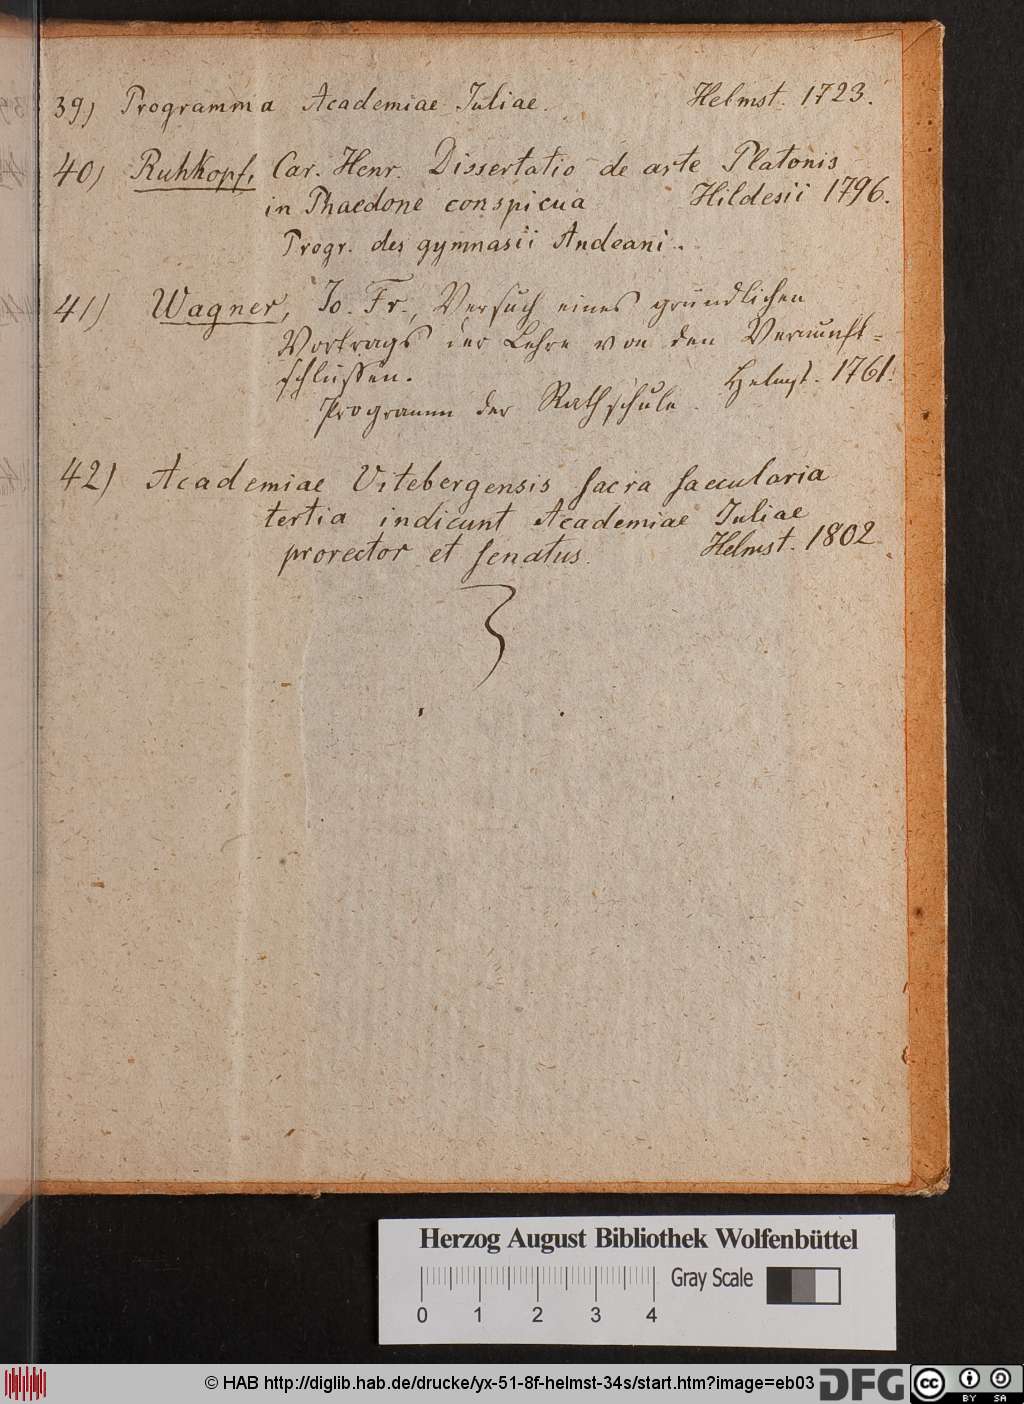 39) Programma Academiae Iuliae. Helmst. 1723.
40) Ruhkopf, Car. Henr. Dissertatio de arte Platonis
in Phaedone conspicua Hildesii 1796.
Progr. des gymnasii Andeani.
41) Wagner, Jo. Fr., Versuch eines gründlichen
Vortrags der Lehre von den Vernunft=
schlüssen. Helmst. 1761.
Programm der Rathschule.
42) Academiae Vitebergensis sacra saecularia
tertia indicunt Academiae Iuliae
prorector et senatus. Helmst. 1802
Herzog August Bibliothek Wolfenbüttel
Gray Scale
0 1 2 3 4
© HAB http://diglib.hab.de/drucke/yx-51-8f-helmst-34s/start.htm?image=eb03
DFG
cc BY SA